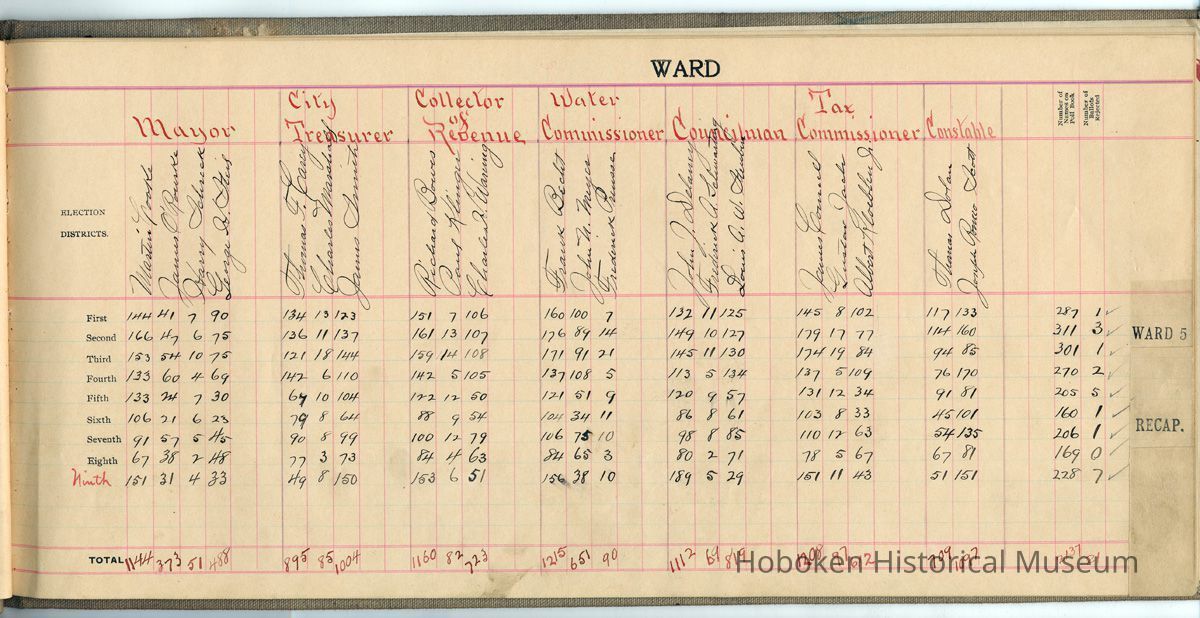 WARD
Mayor City Treasurer Collector of Revenue Water Commissioner Councilman Tax Commissioner Constable Number of Names on Poll Book Number of Ballots Rejected
ELECTION DISTRICTS. Martin Cooke James O'Rourke Harry Schreck George H. Steil Thomas F. Carey Charles Marshall James Smith Richard Bowes Paul Klinger Charles D. Warning Frank Becht John M. Meyer Frederick Prusser John J. Delaney Frederick A. Louis A. W. James Connell Gustav Albert Thomas Dolan Joseph Romeo Scott
First 144 41 7 90 134 13 123 151 7 106 160 100 7 132 11 125 145 8 102 117 133 287 1 ✓
Second 166 47 6 75 136 11 137 161 13 107 176 89 14 149 10 127 179 17 77 114 160 311 3 ✓
Third 153 54 10 75 121 18 144 159 14 108 171 91 21 145 11 130 174 19 84 94 85 301 1 ✓
Fourth 133 60 4 69 142 6 110 142 5 105 137 108 5 113 5 134 137 5 109 76 170 270 2 ✓
Fifth 133 24 7 30 67 10 104 122 12 50 121 51 9 120 9 57 131 12 34 91 81 205 5 ✓
Sixth 106 21 6 23 79 8 64 88 9 54 104 34 11 86 8 61 103 8 33 45 101 160 1 ✓
Seventh 91 57 5 45 90 8 99 100 12 79 106 75 10 98 8 85 110 12 63 54 135 206 1 ✓
Eighth 67 38 2 48 77 3 73 84 4 63 84 65 3 80 2 71 78 5 67 67 81 169 0 ✓
Ninth 151 31 4 33 49 8 150 153 6 51 156 38 10 189 5 29 151 11 43 51 151 228 7 ✓
TOTAL 1144 373 51 488 895 85 1004 1160 82 723 1215 651 90 1112 69 819 1208 97 612 709 1097 2137 21
WARD 5
RECAP.
Hoboken Historical Museum